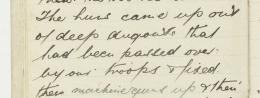 The huns came up out
of deep dugouts that
had been passed over
by our troops & fixed
their machine guns up & their